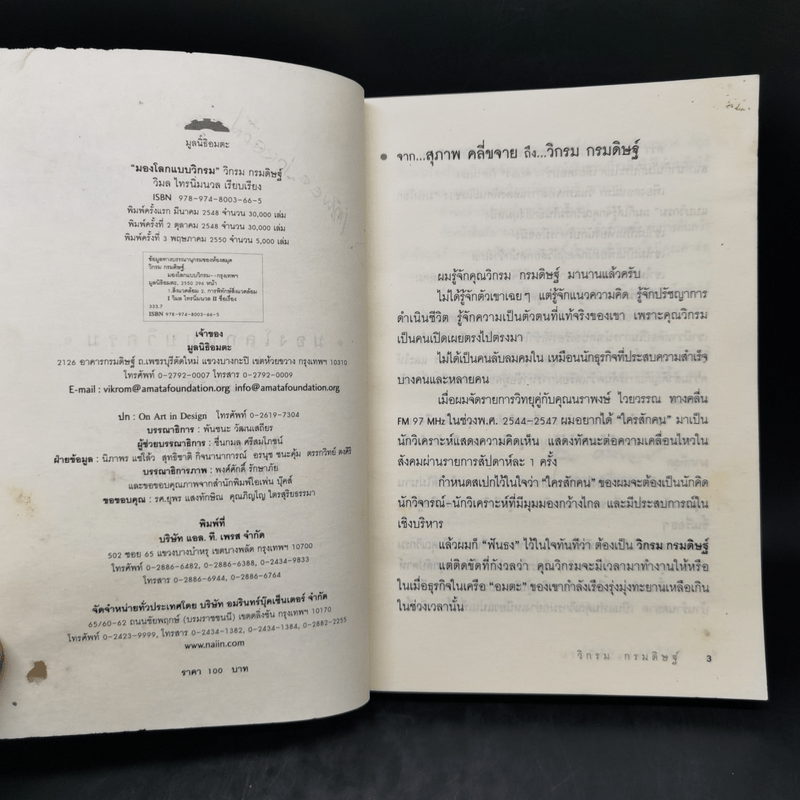 มูลนิธิอมตะ
"มองโลกแบบวิกรม" วิกรม กรมดิษฐ์
วิมล ไทรนิ่มนวล เรียบเรียง
ISBN 978-974-8003-66-5
พิมพ์ครั้งแรก มีนาคม 2548 จำนวน 30,000 เล่ม
พิมพ์ครั้งที่ 2 ตุลาคม 2548 จำนวน 30,000 เล่ม
พิมพ์ครั้งที่ 3 พฤษภาคม 2550 จำนวน 5,000 เล่ม
ข้อมูลทางบรรณานุกรมของห้องสมุด
วิกรม กรมดิษฐ์.
มองโลกแบบวิกรม--กรุงเทพฯ
มูลนิธิอมตะ, 2550 296 หน้า
1.สิ่งแวดล้อม 2. การพิทักษ์สิ่งแวดล้อม
I วิมล ไทรนิ่มนวล II ชื่อเรื่อง
333.7
ISBN 978-974-8003-66-5
เจ้าของ
มูลนิธิอมตะ
2126 อาคารกรมดิษฐ์ ถ.เพชรบุรีตัดใหม่ แขวงบางกะปิ เขตห้วยขวาง กรุงเทพฯ 10310
โทรศัพท์ 0-2792-0007 โทรสาร 0-2792-0009
E-mail : vikrom@amatafoundation.org info@amatafoundation.org
ปก : On Art in Design โทรศัพท์ 0-2619-7304
บรรณาธิการ : พันชนะ วัฒนเสถียร
ผู้ช่วยบรรณาธิการ : ชื่นกมล ศรีสมโภชน์
ฝ่ายข้อมูล : นิภาพร แซ่โล้ว สุทธิชาติ กิจนานาการณ์ อรนุช ชนะคุ้ม ดรรกวิทย์ ดงศิริ
บรรณาธิการภาพ : พงศ์ศักดิ์ รักษาภัย
และขอขอบคุณภาพจากสำนักพิมพ์โอเพ่น บุ๊คส์
ขอขอบคุณ : รศ.ยุพร แสงทักษิณ คุณภิญโญ ไตรสุริยธรรมา
พิมพ์ที่
บริษัท แอล. ที. เพรส จำกัด
502 ซอย 65 แขวงบางบำหรุ เขตบางพลัด กรุงเทพฯ 10700
โทรศัพท์ 0-2886-6482, 0-2886-6388, 0-2434-9833
โทรสาร 0-2886-6944, 0-2886-6764
จัดจำหน่ายทั่วประเทศโดย บริษัท อมรินทร์บุ๊คเซ็นเตอร์ จำกัด
65/60-62 ถนนชัยพฤกษ์ (บรมราชชนนี) เขตตลิ่งชัน กรุงเทพฯ 10170
โทรศัพท์ 0-2423-9999, โทรสาร 0-2434-1382, 0-2434-1384, 0-2882-2255
www.naiin.com
ราคา 100 บาท
จาก...สุภาพ คลี่ขจาย ถึง...วิกรม กรมดิษฐ์
ผมรู้จักคุณวิกรม กรมดิษฐ์ มานานแล้วครับ
ไม่ได้รู้จักตัวเขาเฉยๆ แต่รู้จักแนวความคิด รู้จักปรัชญาการ
ดำเนินชีวิต รู้จักความเป็นตัวตนที่แท้จริงของเขา เพราะคุณวิกรม
เป็นคนเปิดเผยตรงไปตรงมา
ไม่ได้เป็นคนลับลมคมใน เหมือนนักธุรกิจที่ประสบความสำเร็จ
บางคนและหลายคน
เมื่อผมจัดรายการวิทยุคู่กับคุณนราพงษ์ ไวยวรรณ ทางคลื่น
FM 97 MHz ในช่วงพ.ศ. 2544-2547 ผมอยากได้ "ใครสักคน" มาเป็น
นักวิเคราะห์แสดงความคิดเห็น แสดงทัศนะต่อความเคลื่อนไหวใน
สังคมผ่านรายการสัปดาห์ละ 1 ครั้ง
กำหนดสเปกไว้ในใจว่า "ใครสักคน" ของผมจะต้องเป็นนักคิด
นักวิจารณ์-นักวิเคราะห์ที่มีมุมมองกว้างไกล และมีประสบการณ์ใน
เชิงบริหาร
แล้วผมก็ "ฟันธง" ไว้ในใจทันทีว่า ต้องเป็น วิกรม กรมดิษฐ์
แต่ติดขัดที่กังวลว่า คุณวิกรมจะมีเวลามาทำงานให้หรือ
ในเมื่อธุรกิจในเครือ "อมตะ" ของเขากำลังเรืองรุ่งพุ่งทะยานเหลือเกิน
ในช่วงเวลานั้น
วิกรม กรมดิษฐ์ 3